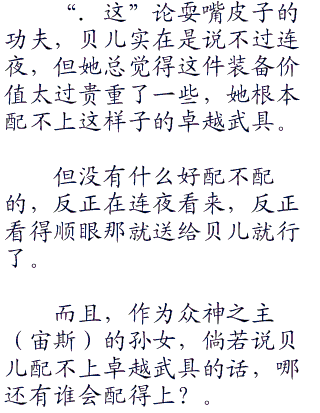 “．这”论耍嘴皮子的
功夫，贝儿实在是说不过连
夜，但她总觉得这件装备价
值太过贵重了一些，她根本
配不上这样子的卓越武具。
但没有什么好配不配
的，反正在连夜看来，反正
看得顺眼那就送给贝儿就行
了。
而且，作为众神之主
（宙斯）的孙女，倘若说贝
儿配不上卓越武具的话，哪
还有谁会配得上？。